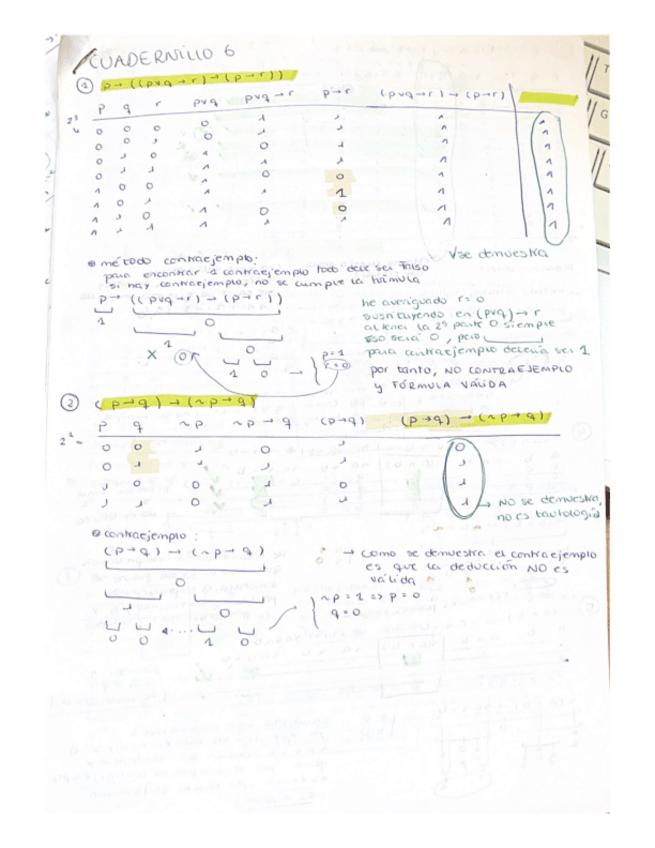 CUADERNILLO 6
① p → ((p∨q → r) → (p → r))
p q r p∨q p∨q → r p → r (p∨q → r) → (p → r)
2³
0 0 0 0 1 1 1 1
0 0 1 0 1 1 1 1
0 1 0 1 0 1 1 1
0 1 1 1 1 1 1 1
1 0 0 1 0 0 1 1
1 0 1 1 1 1 1
1 1 0 1 0 0 1 1
1 1 1 1 1 1 1
se demuestra
método contraejemplo:
para encontrar 1 contraejemplo todo debe ser falso
si hay contraejemplo, no se cumple la fórmula
p → ((p∨q → r) → (p → r))
1 0
1 0
X 0 1 0 → { p = 1
r = 0
he averiguado r = 0
sustituyendo en (p∨q) → r
al tener la 2ª parte 0 siempre
eso será 0, pero
para contraejemplo debería ser 1
por tanto, NO CONTRAEJEMPLO
y FÓRMULA VÁLIDA
② (p → q) → (~p → q)
p q ~p ~p → q (p → q) (p → q) → (~p → q)
2²
0 0 1 0 1 0
0 1 1 1 1 1
1 0 0 1 0 1
1 1 0 1 1 1
→ NO se demuestra,
no es tautología
contraejemplo:
(p → q) → (~p → q)
0
1 0
0 0 ... 1 0
{ ~p = 1 => p = 0
q = 0
→ como se demuestra el contraejemplo
es que la deducción NO es
válida